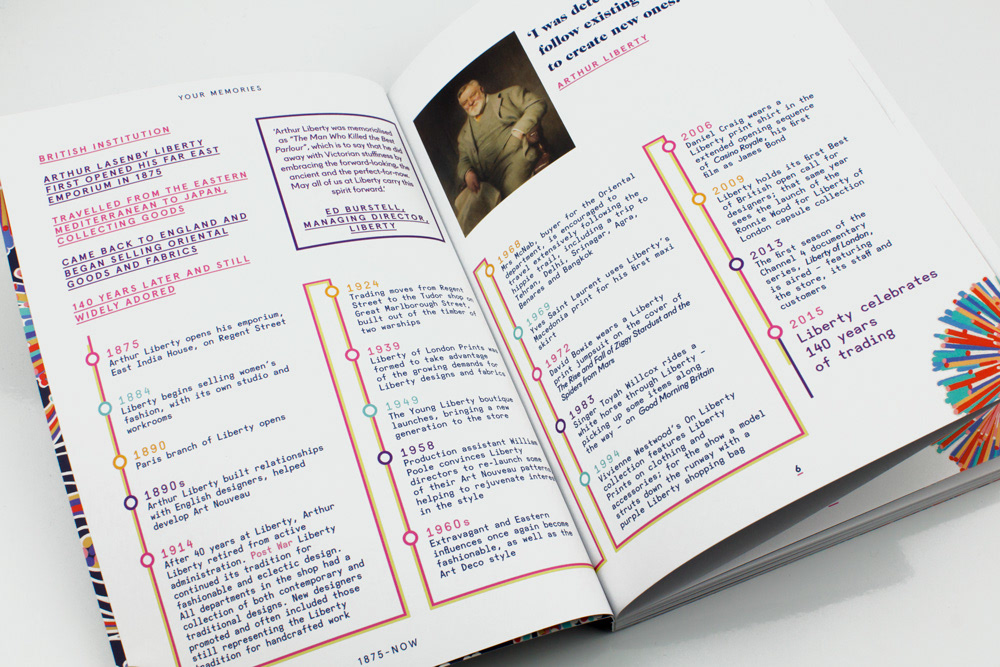 YOUR MEMORIES
BRITISH INSTITUTION
ARTHUR LASENBY LIBERTY
FIRST OPENED HIS FAR EAST
EMPORIUM IN 1875
TRAVELLED FROM THE EASTERN
MEDITERRANEAN TO JAPAN,
COLLECTING GOODS
CAME BACK TO ENGLAND AND
BEGAN SELLING ORIENTAL
GOODS AND FABRICS
140 YEARS LATER AND STILL
WIDELY ADORED
'Arthur Liberty was memorialised
as "The Man Who Killed the Best
Parlour", which is to say that he did
away with Victorian stuffiness by
embracing the forward-looking, the
ancient and the perfect-for-now.
May all of us at Liberty carry this
spirit forward.'
ED BURSTELL,
MANAGING DIRECTOR,
LIBERTY
1875
Arthur Liberty opens his emporium,
East India House, on Regent Street
1884
Liberty begins selling women's
fashion, with its own studio and
workrooms
1890
Paris branch of Liberty opens
1890s
Arthur Liberty built relationships
with English designers, helped
develop Art Nouveau
1914
After 40 years at Liberty, Arthur
Liberty retired from active
administration. Post War Liberty
continued its tradition for
fashionable and eclectic design.
All departments in the shop had a
collection of both contemporary and
traditional designs. New designers
promoted and often included those
still representing the Liberty
tradition for handcrafted work
1924
Trading moves from Regent
Street to the Tudor shop on
Great Marlborough Street,
built out of the timber of
two warships
1939
Liberty of London Prints was
formed to take advantage
of the growing demands for
Liberty designs and fabrics
1949
The Young Liberty boutique
launches, bringing a new
generation to the store
1958
Production assistant William
Poole convinces Liberty
directors to re-launch some
of their Art Nouveau patterns
helping to rejuvenate interest
in the style
1960s
Extravagant and Eastern
influences once again become
fashionable, as well as the
Art Deco style
1875–NOW
'I was
follow existing
to create new ones.
ARTHUR LIBERTY
1968
Mrs McNab, buyer for the Oriental
department, is encouraged to
travel extensively following the
hippie trail, including a trip to
Tehran, Delhi, Srinagar, Agra,
Benares and Bangkok
1969
Yves Saint Laurent uses Liberty's
Macedonia print for his first maxi
skirt
1972
David Bowie wears a Liberty
print jumpsuit on the cover of
The Rise and Fall of Ziggy Stardust and the
Spiders from Mars
1983
Singer Toyah Willcox rides a
white horse through Liberty –
picking up some items along
the way – on Good Morning Britain
1994
Vivienne Westwood's On Liberty
collection features Liberty
Prints on clothing and
accessories; for the show a model
struts down the runway with a
purple Liberty shopping bag
2006
Daniel Craig wears a
Liberty print shirt in the
extended opening sequence
of Casino Royale, his first
film as James Bond
2009
Liberty holds its first Best
of British open call for
designers; that same year
sees the launch of the
Ronnie Wood for Liberty
London capsule collection
2013
The first season of the
Channel 4 documentary
series, Liberty of London,
is aired – featuring
the store, its staff and
customers
2015
Liberty celebrates
140 years
of trading
6